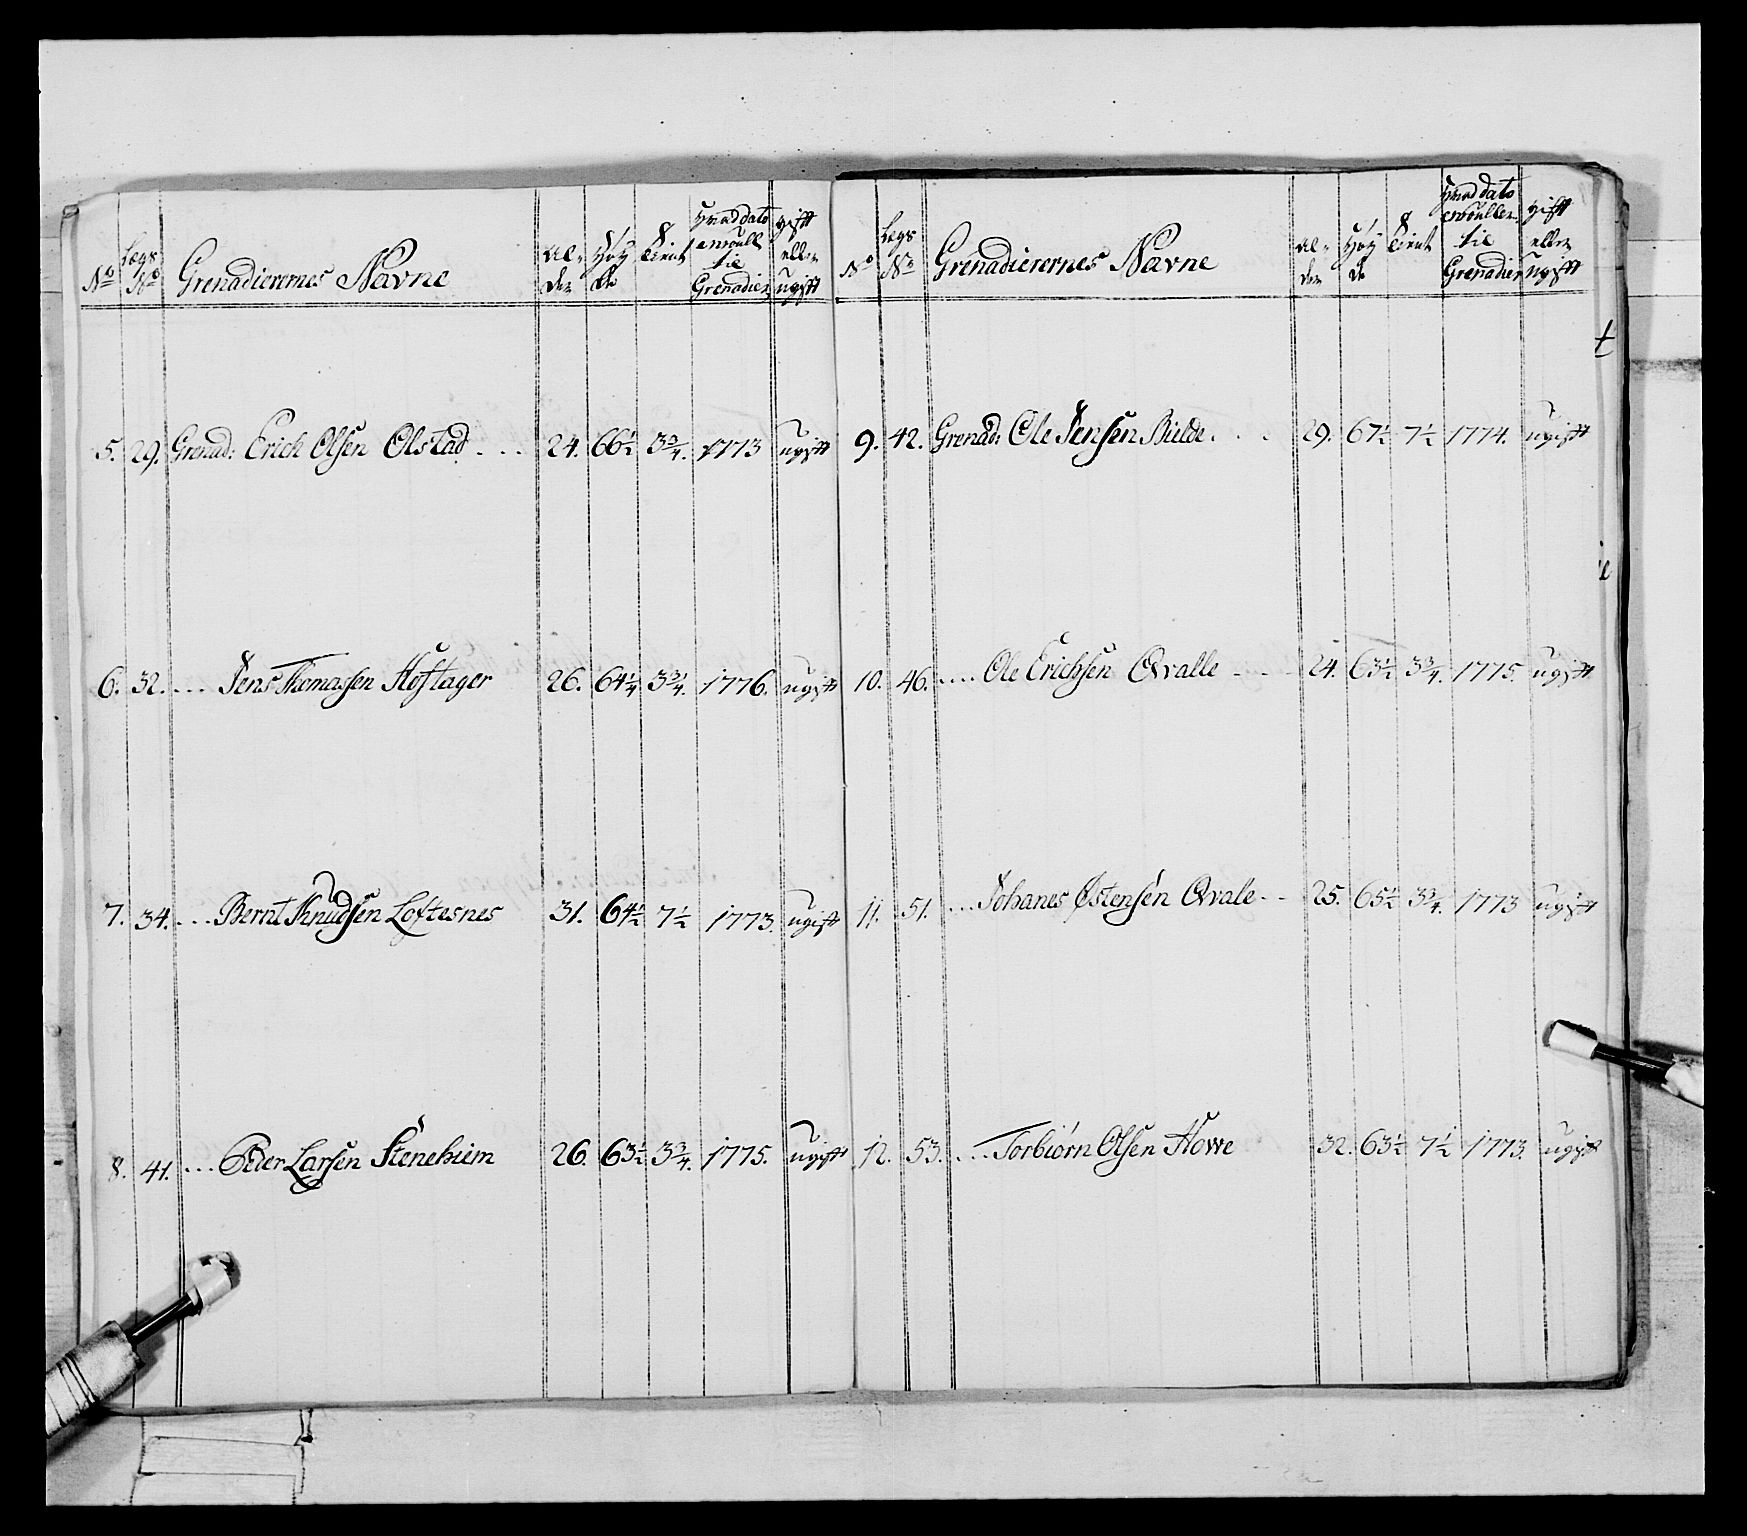 No Lægs No Grenadierernes Navne Al- der Høy de Tient Hvad dato enroull til Grenadier gift eller ugift
5. 29. Grenad: Erich Olsen Olstad . . . 24. 66½ 3¾. 1773 ugift
6. 32. ... Jens Thomassen Hoftager 26. 64¼ 3¾. 1776. ugift
7. 34. ... Bernt Knudsen Loftesnes 31. 64½ 7½ 1773. ugift
8. 41. ... Peder Larsen Stenehiem 26. 63½ 3¾. 1775. ugift
No Lægs No Grenadierernes Navne Al- der Høy de Tient Hvad dato enrouller til Grenadier gift eller ugift
9. 42. Grenad: Ole Jensen Bielde . . . 29. 67½ 7½ 1774. ugift
10. 46. .... Ole Erichsen Qvalle - - - 24. 63½ 3¾. 1775. ugift
11. 51. ... Johanes Østensen Qvale - - 25. 65½ 3¾. 1773 ugift
12. 53. ... Torbiørn Olsen Howe 32. 63½ 7½ 1773. ugift